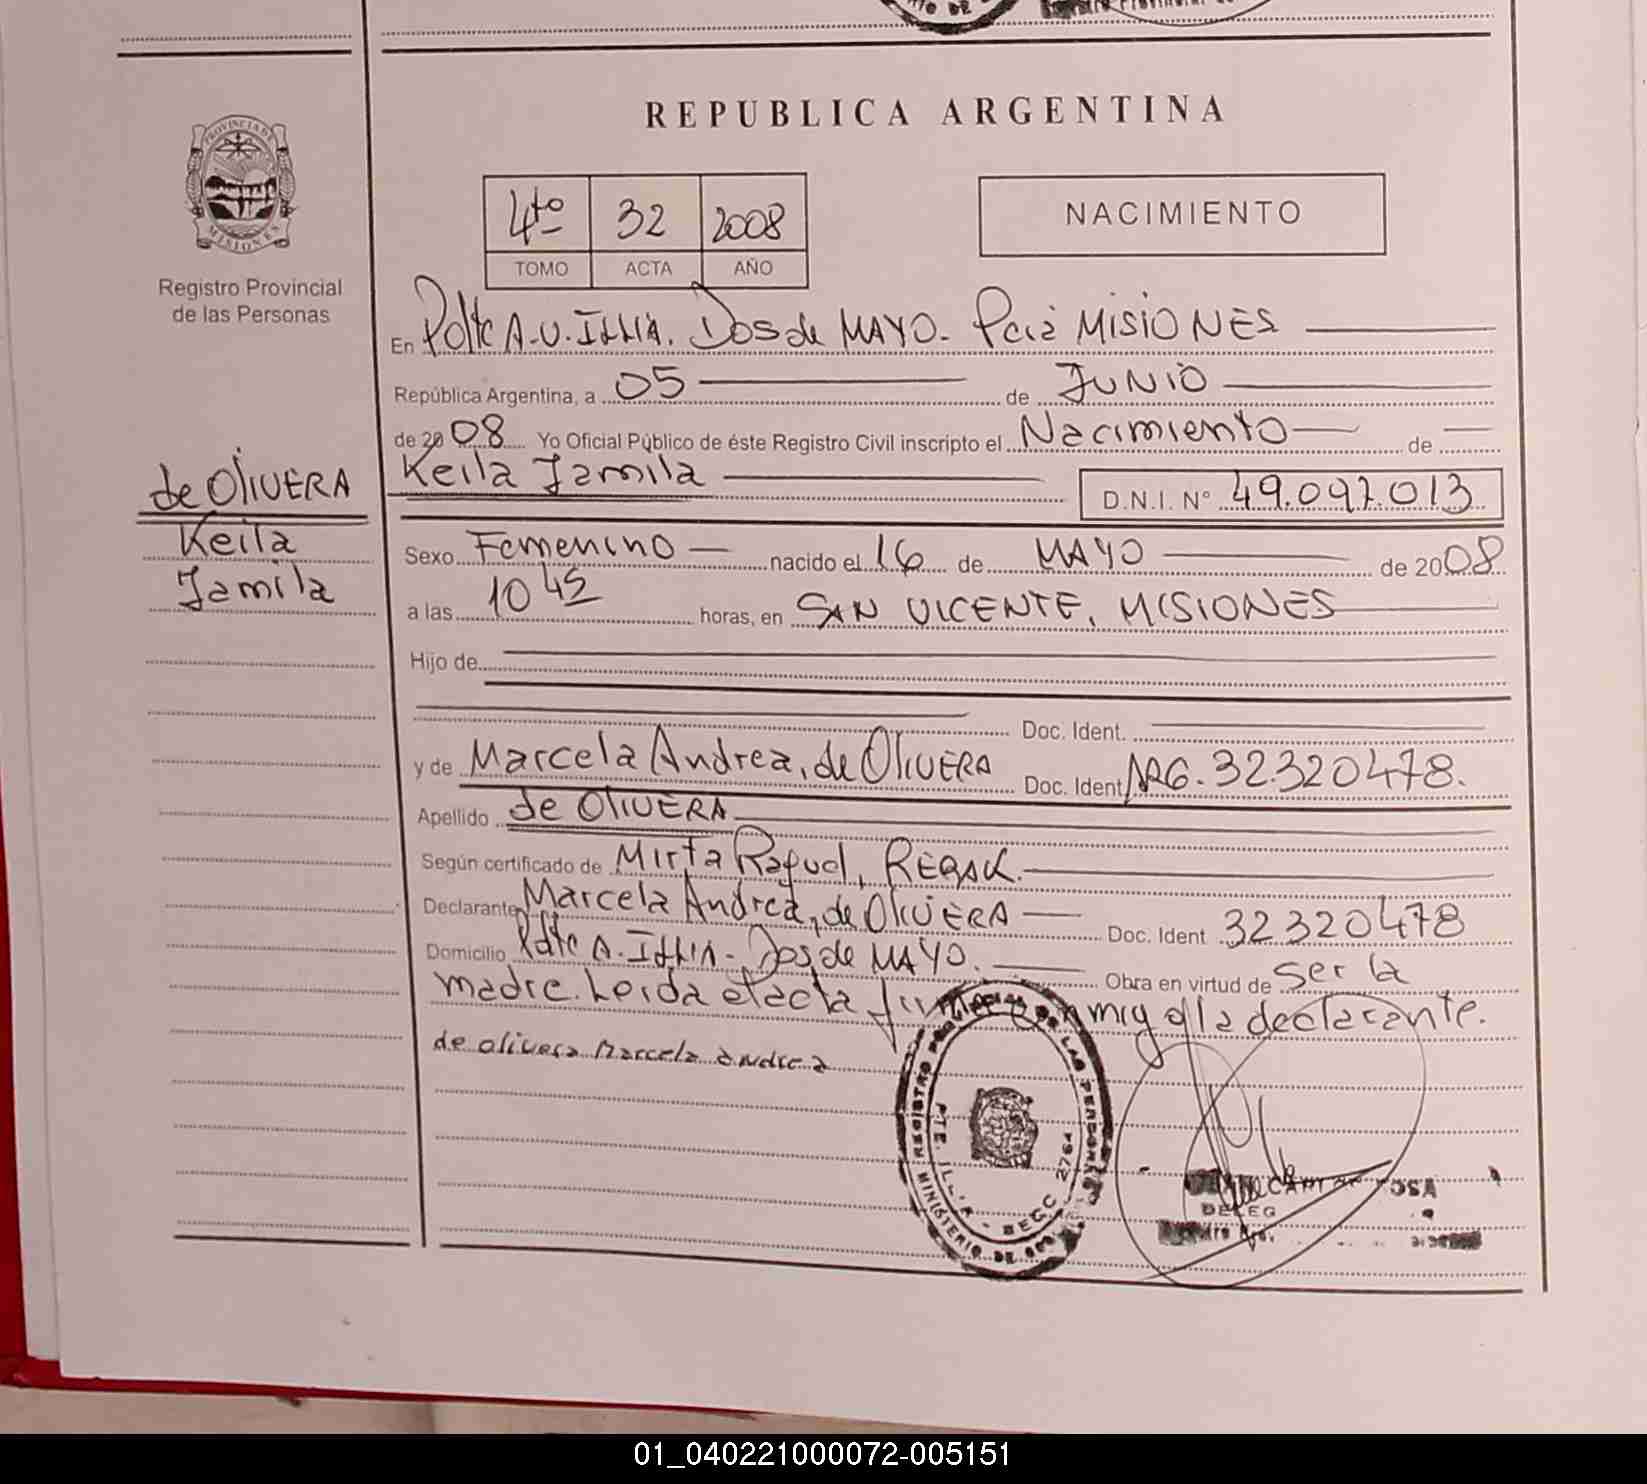 REPUBLICA ARGENTINA
PROVINCIA DE
MISIONES
Registro Provincial
de las Personas
4to 32 2008
TOMO ACTA AÑO
NACIMIENTO
En Pdte A.U. Illia. Dos de MAYO. Pcia MISIONES
República Argentina, a 05 de JUNIO
de 2008 Yo Oficial Público de éste Registro Civil inscripto el Nacimiento de
de OLIVERA
Keila Jamila
D.N.I. N° 49.097.013
Keila
Jamila
Sexo Femenino nacido el 16 de MAYO de 2008
a las 10 45 horas, en SAN VICENTE, MISIONES
Hijo de
Doc. Ident.
y de Marcela Andrea, de OLIVERA Doc. Ident ARG. 32.320478.
Apellido de OLIVERA
Según certificado de Mirta Raquel,
Declarante Marcela Andrea, de OLIVERA Doc. Ident 32320478
Domicilio Pdte A. Illia - Dos de MAYO. Obra en virtud de ser la
madre. Leida el acta la declarante.
de olivera Marcela Andrea
REGISTRO DE LAS PERSONAS
MINISTERIO DE
2764
DELEG
01_040221000072-005151